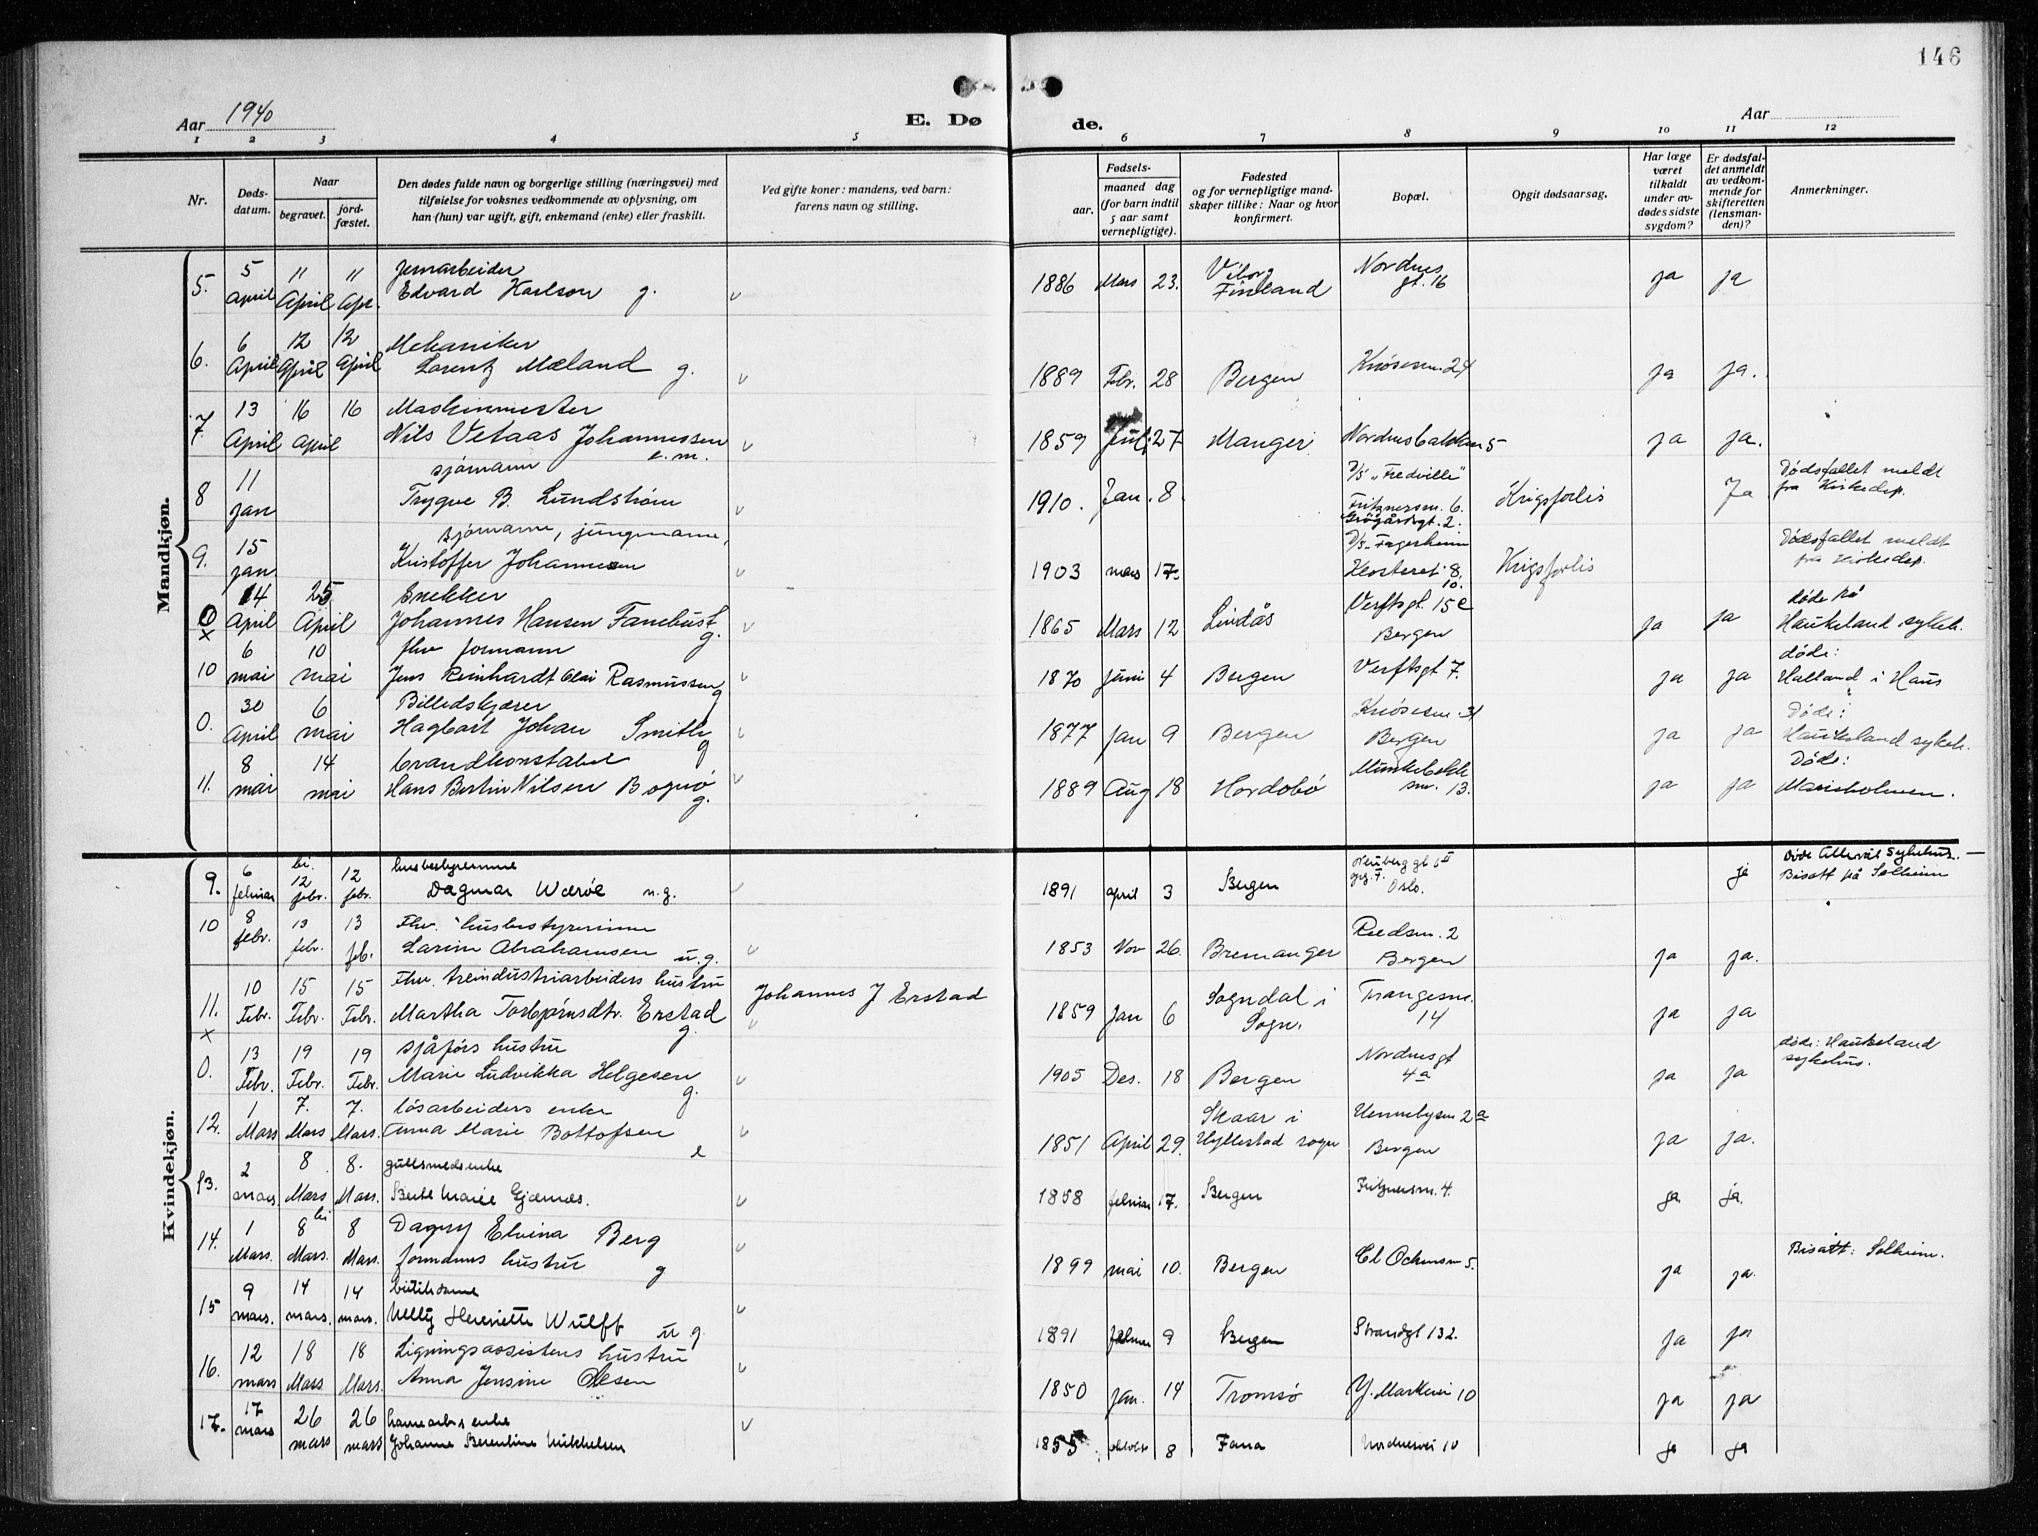 146
Aar 1940
E. Dø
de.
Aar
1 2 3 4 5 6 7 8 9 10 11 12
Nr.
Døds-
datum.
Naar
begravet.
jord-
fæstet.
Den dødes fulde navn og borgerlige stilling (næringsvei) med
tilføielse for voksnes vedkommende av oplysning, om
han (hun) var ugift, gift, enkemand (enke) eller fraskilt.
Ved gifte koner: mandens, ved barn:
farens navn og stilling.
Fødsels-
aar.
maaned dag
(for barn indtil
5 aar samt
vernepligtige).
Fødested
og for vernepligtige mand-
skaper tillike: Naar og hvor
konfirmert.
Bopæl.
Opgit dødsaarsag.
Har læge
været
tilkaldt
under av-
dødes sidste
sygdom?
Er dødsfal-
det anmeldt
av vedkom-
mende for
skifteretten
(lensman-
den)?
Anmerkninger.
Mandkjøn.
5. 5 April 11 April 11 Apr. Jernarbeider
Edvard Karlson g. 1886 Mars 23. Viborg
Finland Nordnes
gt. 16 ja ja
6. 6 April 12 April 12 April Mekaniker
Lorentz Mæland g. 1889 Febr. 28 Bergen Knøsesm. 24 ja ja.
7. 13 April 16 April 16 Maskinmester
Nils Vetaas Johannessen
e.m. 1859 Juli 27 Manger Nordnesbakken 5 ja ja.
8 11 jan sjømann
Trygve B. Lundstrøm 1910. Jan. 8 D/S "Fredville"
Fritznersm. 6.
Grøgårdsgt. 2. Krigsforlis Ja Dødsfallet meldt
fra Kirkedep.
9. 15 jan. sjømann, jungmann,
Kristoffer Johannesen 1903 mars 17. D/S "Fagerheim"
Klosteret 8,
10. Krigsforlis Dødsfallet meldt
fra Kirkedep.
0 x 14 April 25 April Snekker
Johannes Hansen Fanebust
g. 1865 Mars 12 Lindås Verftsgt. 15 e
Bergen ja ja døde på
Haukeland sykeh.
10 6 mai 10 mai fhv formann
Jens Reinhardt Olai Rasmussen
g 1870 Juni 4 Bergen Verftsgt 7. ja ja døde:
Hatland i Haus
0. 30 April 6 mai Billedskjærer
Hagbart Johan Smith
g 1877 Jan 9 Bergen Knøsesm. 31
Bergen ja ja Døde:
Haukeland sykeh.
11. 8 mai 14 mai brandkonstabel
Hans Bertin Nilsen Bognø
g. 1889 Aug 18 Hordabø Munkebekk
sm. 13. ja ja Døde:
Marieholmen.
Kvindekjøn.
9. 6 februar bi. 12 febr. 12 febr. husbestyrerinne
Dagmar Wærøe u.g. 1891 april 3 Bergen Oslo. ja Døde Ullevål Sykehus.
Bisatt på Solheim
10 8 febr. 13 febr. 13 feb. Fhv. husbestyrerinne
Larine Abrahamsen u.g. 1853 Nov 26. Bremanger Reedsm. 2
Bergen ja ja.
11. x 10 Febr. 15 Febr. 15 Febr. Fhv. treindustriarbeiders hustru
Martha Torbjørnsdtr. Erstad
g. Johannes J Erstad 1859 Jan 6 Sogndal i
Sogn. Trangesm.
14 ja ja
0. 13 Febr. 19 Febr. 19 Febr. sjåførs hustru
Marie Ludvikka Helgesen
g. 1905 Des. 18 Bergen Nordnesgt
4a ja ja døde: Haukeland
sykehus.
12. 1 Mars 7. Mars 7. Mars. løsarbeiders enke
Anna Marie Bottofsen
e 1851 April 29. Skaar i
Hyllestad sogn Hennebysm 2a
Bergen ja ja.
13. 2 mars 8 Mars 8. Mars. gullsmeds enke
Berte Marie Gjærnes. 1858 februar 17. Bergen Fritznersm. 4. ja ja.
14. 1 Mars. 8 bi Mars. 8 Mars. Dagny Elvina Berg
formanns hustru g 1899 mai 10. Bergen Cl Ockensm 5. ja ja. Bisatt: Solheim.
15 9 mars. 14 mars. 14 mars. butikdame
Nelly Henriette Wulff u g. 1891 februar 9 Bergen Strandgt 132. ja ja
16. 12 mars 18 Mars 18 Mars. Ligningsassistens hustru
Anna Jensine Olsen 1850 jan. 14 Tromsø Y. Markevei 10 ja ja
17. 17 mars 26 mars 26 mars havnearb.s enke
Johanne Berentine Mikkelsen 1855 oktober 8 Fana Nordnesvei 10 ja ja